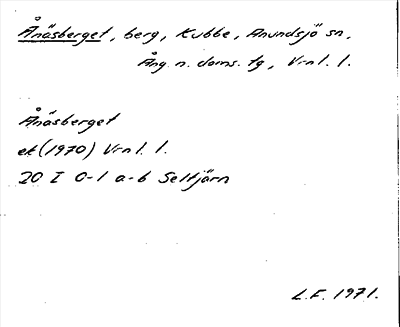 Ånäsberget, berg, Kubbe, Anundsjö sn,
Ång. n. doms. tg, Vrnl. l.
Ånäsberget
ek (1970) Vrnl. l.
20 I 0-1 a-b Seltjärn
L.F. 1971.